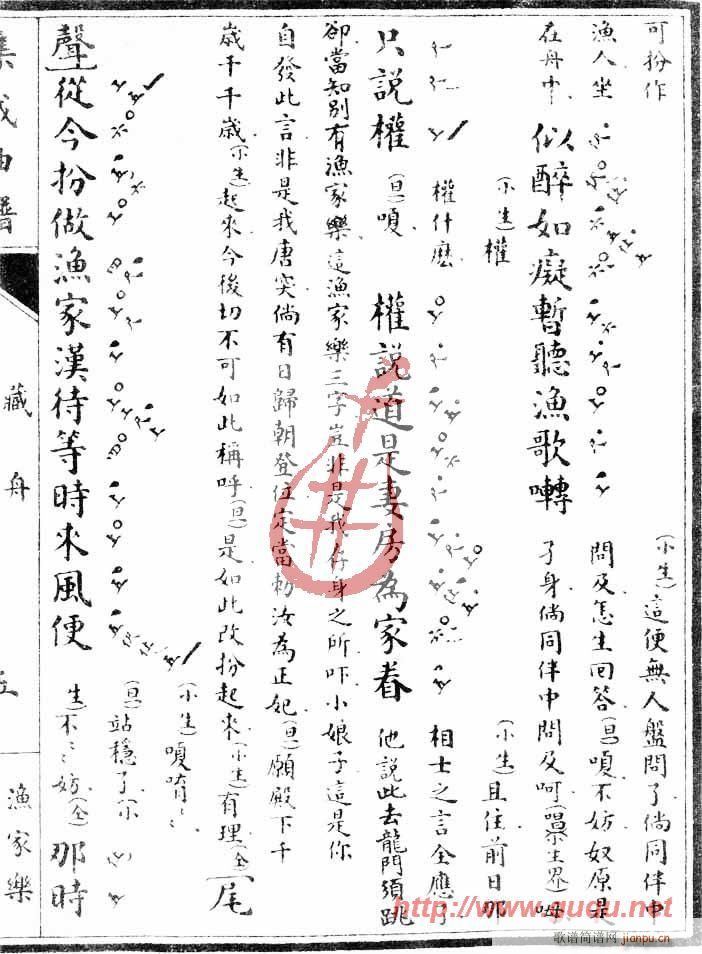 可扮作
漁人坐
在舟中
似醉如癡暫聽漁歌囀
(小生)這便無人盤問了倘同伴中
問及怎生回答(旦)嗄不妨奴原是
孑身倘同伴中問及呵
(小生)權
權什麽
(小生)且住前日那
相士之言全應了
只說權
(旦)嗄
權說道是妻房為家眷
他說此去龍門須跳
卻當知別有漁家樂這漁家樂三字豈非是我存身之所吓小娘子這是你
自發此言非是我唐突倘有日歸朝登位定當勅汝為正妃(旦)願殿下千
歲千千歲(小生)起來今後切不可如此稱呼(旦)是如此改扮起來(小生)有理(仝)尾
聲從今扮做漁家漢待等時來風便
(小生)嗄唷〻
(旦)站穩了(小
生)不〻妨(仝)
那時
集成曲譜
藏舟
漁家樂
http://www.ququ.net
歌谱简谱网 jianpu.cn